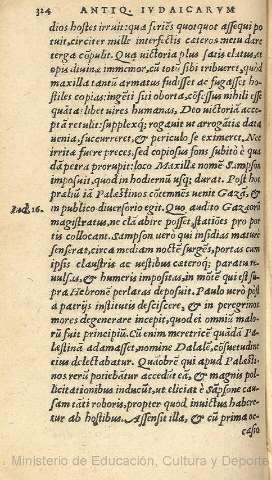 324 ANTIQ. IVDAICARVM
dios hostes irruit: qua feriẽs quotquot assequi po
tuit, circiter mille interfectis cæteros metu dare
terga cõpulit. Qua victoria plus satis elatus, et
opis diuinæ immemor, cũ totũ sibi tribueret, quòd
maxilla tantũ armatus fudisset ac fugasset ho-
stiles copias: ingẽti siti oborta cõfessus nihil esse
quãtalibet uires humanas, Deo uictoriã accep
tã retulit: supplexq́; rogauit ut arrogãtiæ data
uenia, succurreret, & periculo se eximeret. Nec
irritæ fuere preces, sed copiosus fons subitò è qua
dã petra prorupit: loco Maxillæ nomẽ Sampson
imposuit, quod in hodiernũ usq́; durat. Post hoc
præliũ iã Palæstinos cõtemnẽs uenit Gazã, &
Iud. 16. in publico diuersorio egit. Quo audito Gazæorũ
magistratus, ne clã abire posset, statiões pro por
tis collocant. Sampson uerò qui insidias maturè
senserat, circa mediam noctẽ surgẽs, portas cum
ipsis claustris ac uestibus cæteroq́; paratu re-
uulsas, & humeris impositas, in mõtẽ qui est su-
pra Hebronẽ perlatas deposuit. Paulo uerò post
à patrijs institutis desciscere, & in peregrinos
mores degenerare incepit, quod ei omniũ malo-
rũ fuit principiũ. Cũ enim meretricẽ quãdã Pa-
læstinã adamasset, nomine Dalalẽ, cõsuetudine
eius delectabatur. Quãobrẽ qui apud Palæsti-
nos rerũ potiebãtur accedũt eã, & magnis pol-
licitationibus inducũt, ut eliciat è Sãpsone cau-
sam tãti roboris, propter quod inuictus habere-
tur ab hostibus. Assensit illa, & cũ prima oc-
casio
Ministerio de Educación, Cultura y Deporte